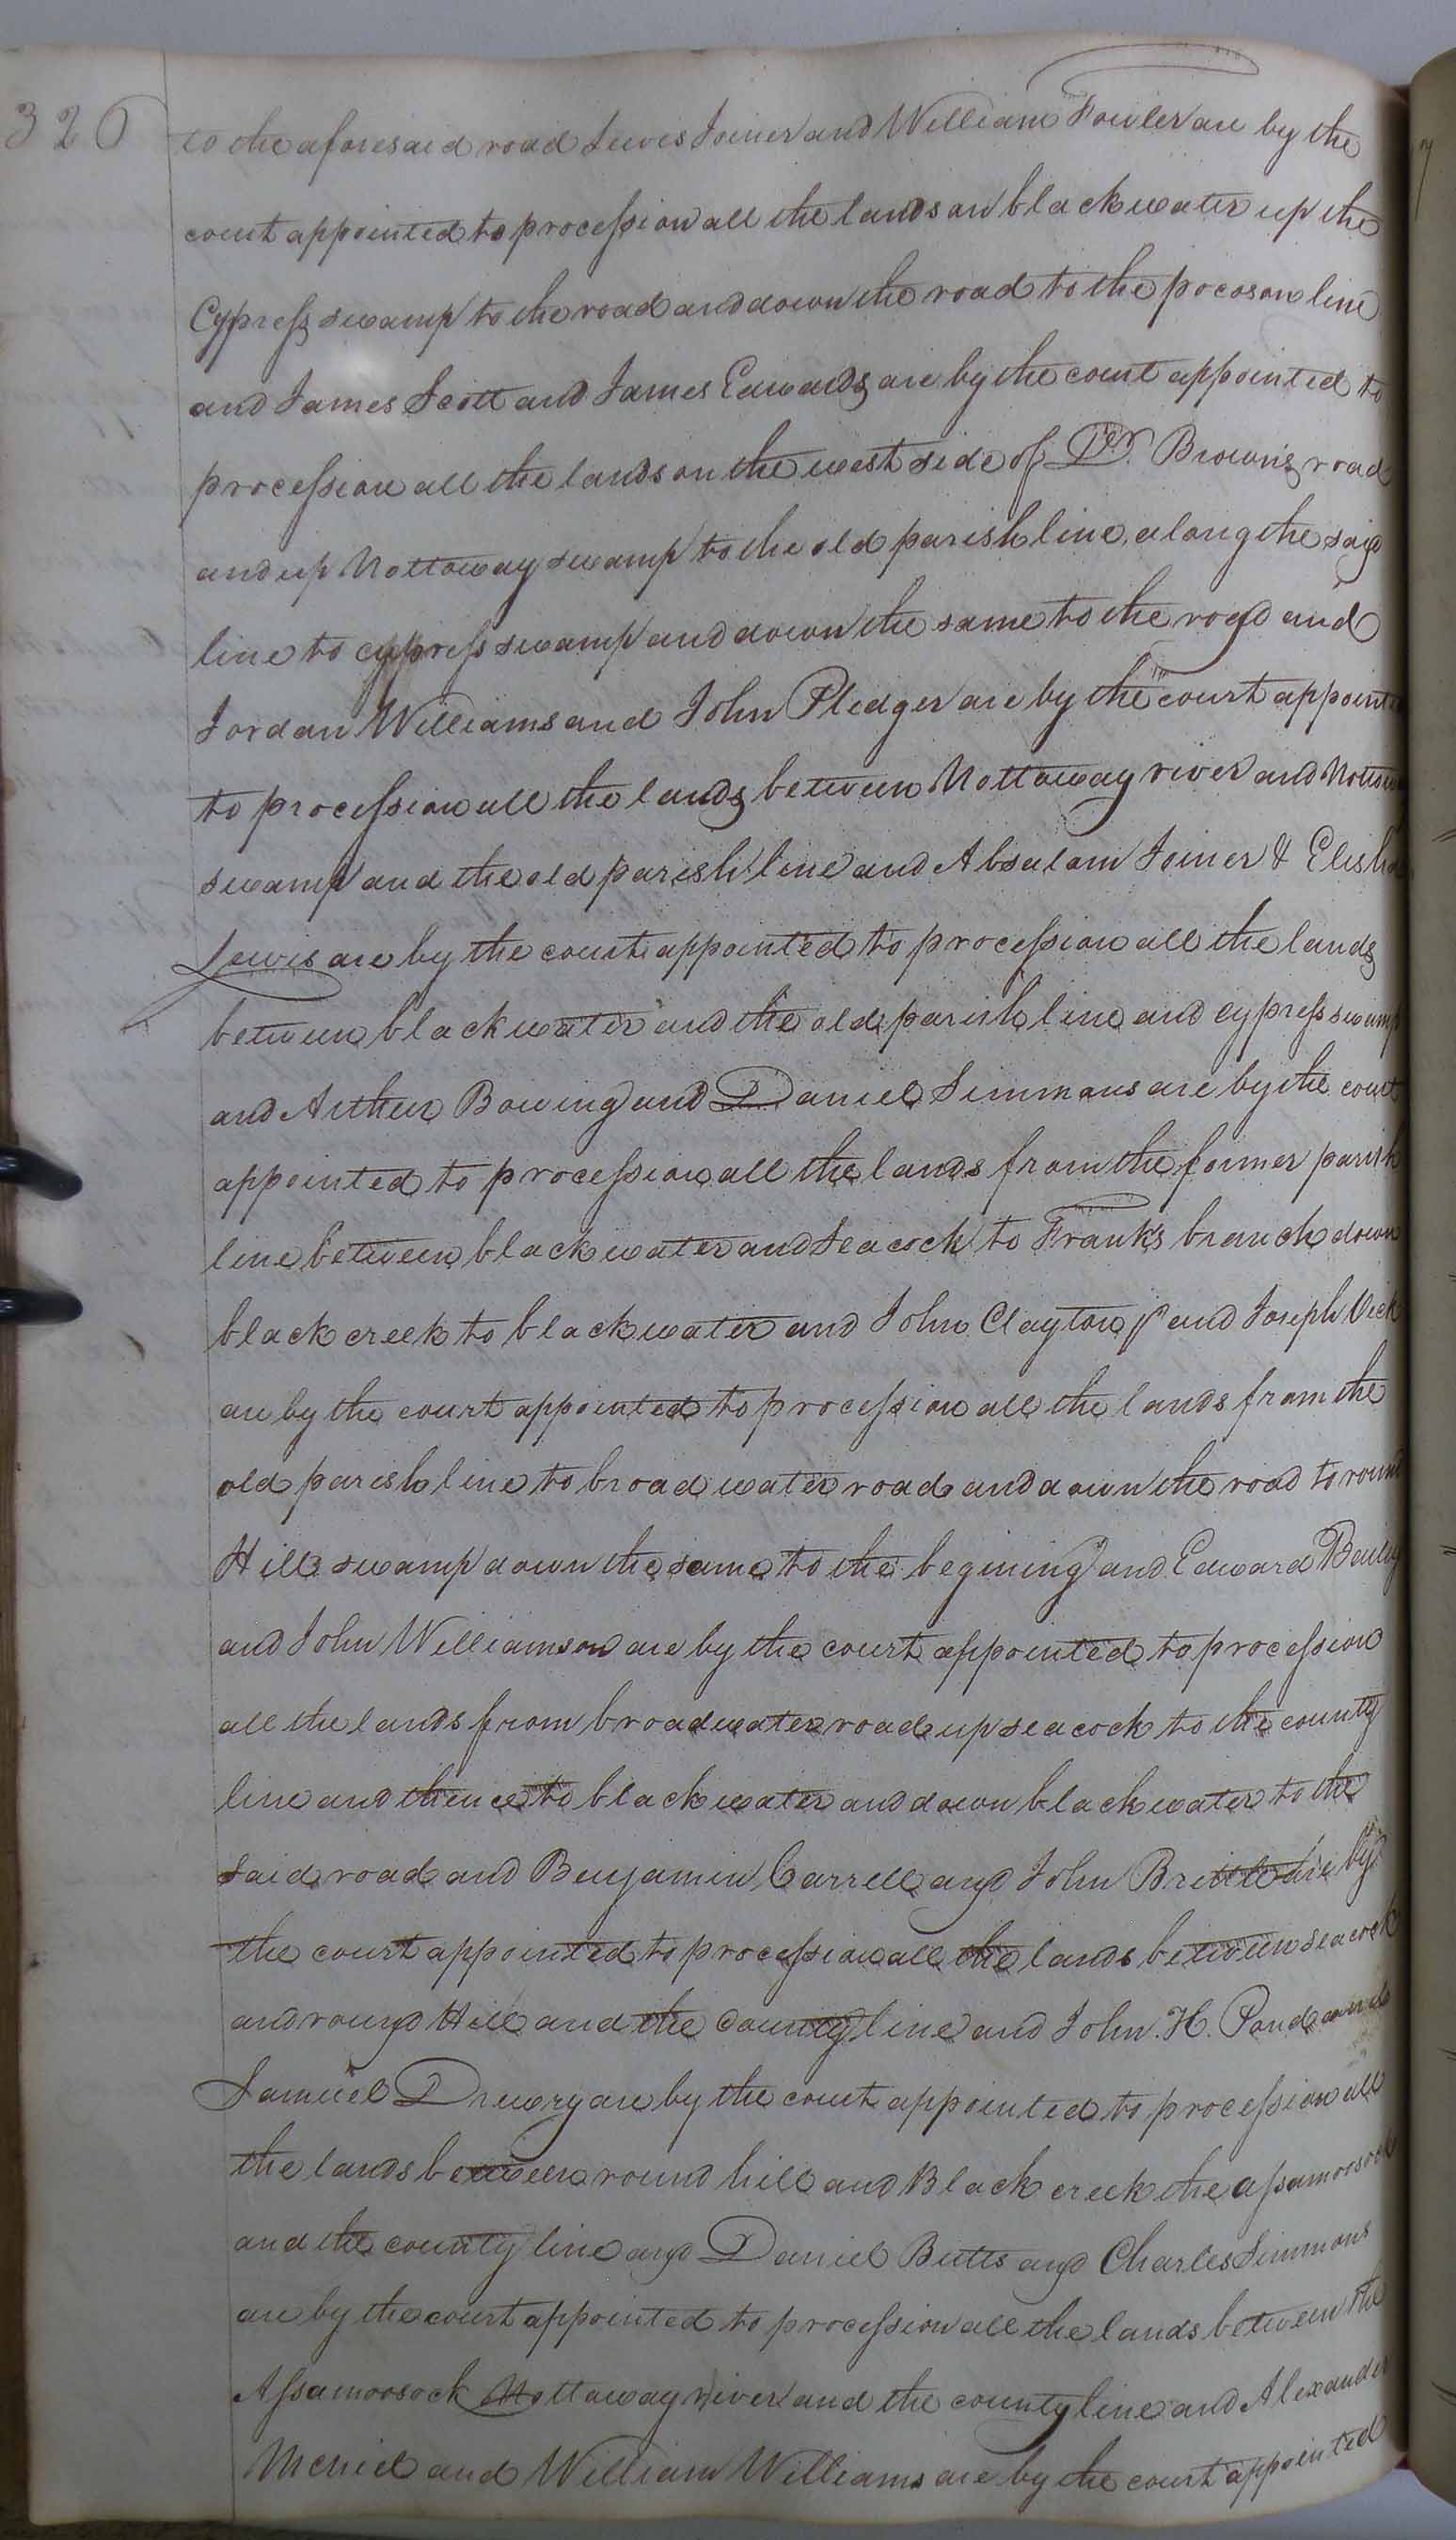 320
to the aforesaid road Lewis Joiner and William Fowler are by the
court appointed to procession all the lands on blackwater up the
Cypress swamp to the road and down the road to the pocoson line
and James Scott and James Edwards are by the court appointed to
procession all the lands on the west side of Dr. Browns road
and up Nottoway swamp to the old parish line, along the said
line to cypress swamp and down the same to the road and
Jordan Williams and John Pledger are by the court appointed
to procession all the lands between Nottoway river and
swamp and the old parish line and Absalom Joiner & Elisha
Lewis are by the court appointed to procession all the lands
between blackwater and the old parish line and cypress swamp
and Arthur Bowing and Daniel Simmons are by the court
appointed to procession all the lands from the former parish
line between blackwater and Seacock to Franks branch down
black creek to blackwater and John Clayton jr and Joseph Vick
are by the court appointed to procession all the lands from the
old parish line to broad water road and down the road to round
Hill swamp down the same to the begining and Edward
and John Williamson are by the court appointed to procession
all the lands from broadwater road up seacock to the county
line and thence to blackwater and down blackwater to the
said road and Benjamin Carrell and John Brittle are by
the court appointed to procession all the lands between seacock
and round Hill and the county line and John. H. Pond and
Samuel Drewry are by the court appointed to procession all
the lands between round hill and Black creek the assamoosock
and the county line and Daniel Butts and Charles Simmons
are by the court appointed to procession all the lands between the
Assamoosock Nottaway river and the county line and Alexander
Mcniel and William Williams are by the court appointed